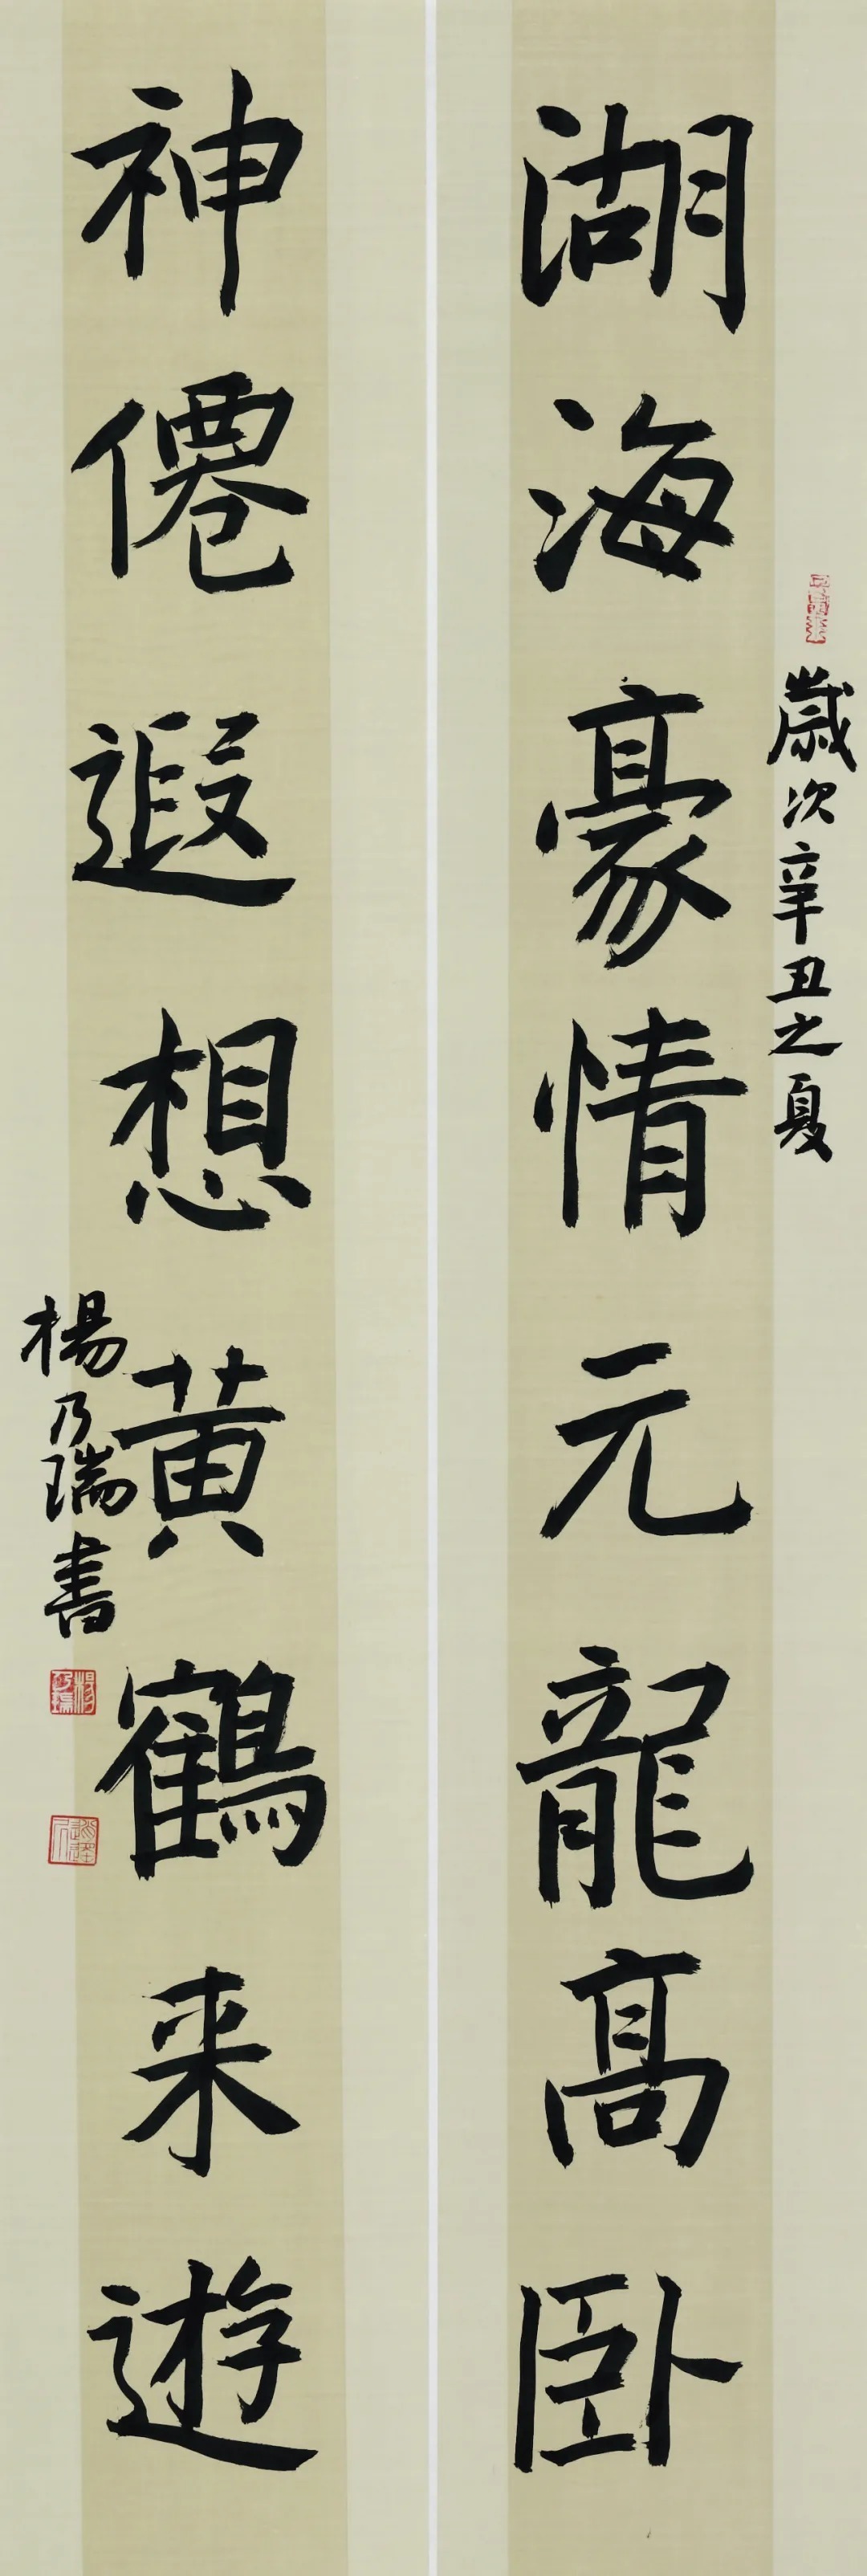 歲次辛丑之夏
湖海豪情元龍高卧
神僊遐想黄鶴来遊
楊乃瑞書
楊乃瑞